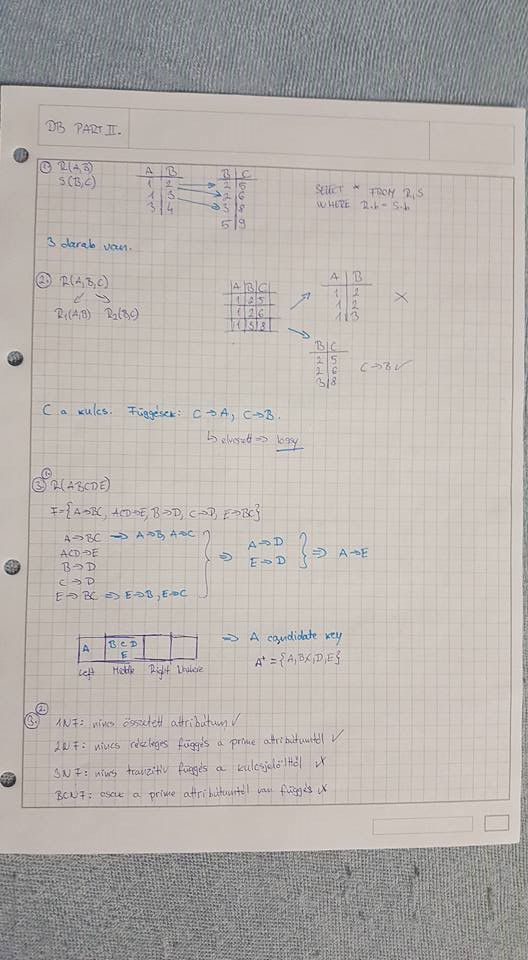 DB PART II.
1. R(A,B)
S(B,C)
A B
1 2
1 3
3 4
B C
2 5
2 6
3 8
5 9
SELECT * FROM R,S
WHERE R.b = S.b
3 darab van.
2. R(A,B,C)
R1(A,B) R2(B,C)
A B C
1 2 5
1 2 6
1 3 8
A B
1 2
1 2
1 3
X
B C
2 5
2 6
3 8
C → B ✓
C a kulcs. Függések: C → A, C → B.
↳ elveszett ⇒ lossy
3. 1. R(ABCDE)
F = {A → BC, ACD → E, B → D, C → D, E → BC}
A → BC ⇒ A → B, A → C
ACD → E
B → D
C → D
E → BC ⇒ E → B, E → C
⇒ A → D
E → D
⇒ A → E
A B C D
E
Left Middle Right Nowhere
⇒ A candidate key
A+ = {A, B, C, D, E}
3. 2. 1NF: nincs összetett attribútum ✓
2NF: nincs részleges függés a prime attribútumtól ✓
3NF: nincs tranzitív függés a kulcsjelölttől X
BCNF: csak a prime attribútumtól van függés X